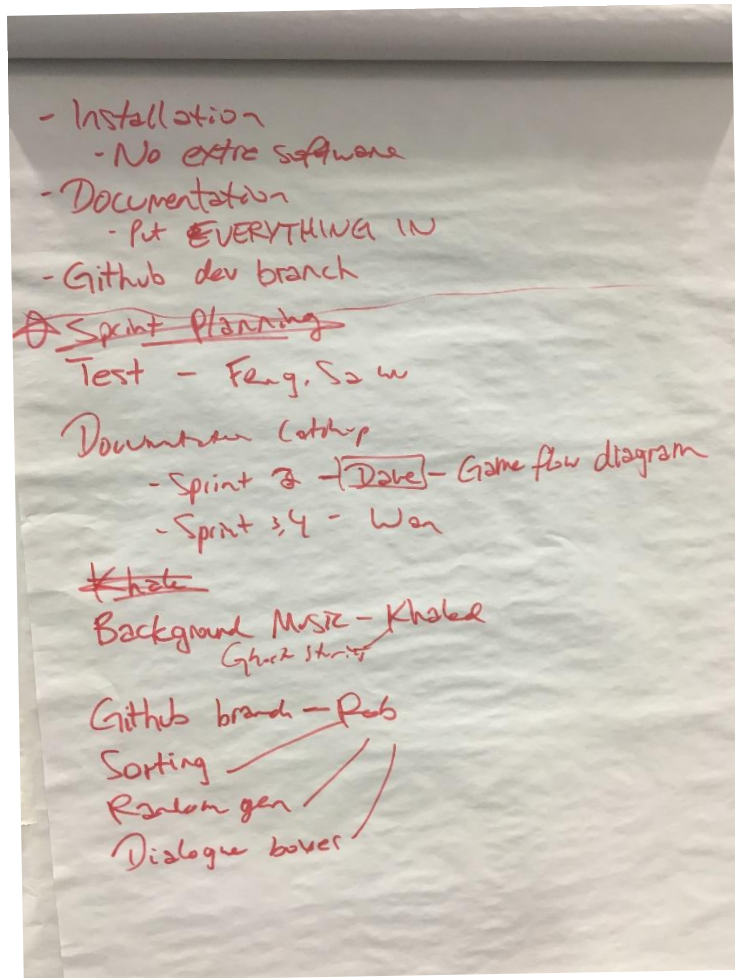 - Installation
- No extra software
- Documentation
- Put EVERYTHING IN
- Github dev branch
Sprint Planning
Test - Feng, Sam
Documentation Catchup
- Sprint 2 - Dave - Game flow diagram
- Sprint 3,4 - Wen
Khale
Background Music - Khaled
Github branch - Rob
Sorting
Random gen
Dialogue boxes